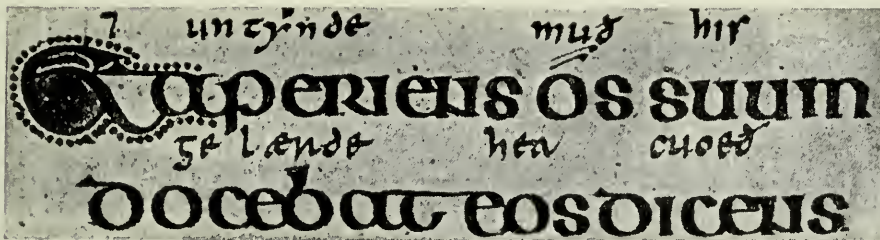 ⁊ un tynde muð his
Et aperiens ós suum
ge lærde hea cuoeð
docebat eos dicens